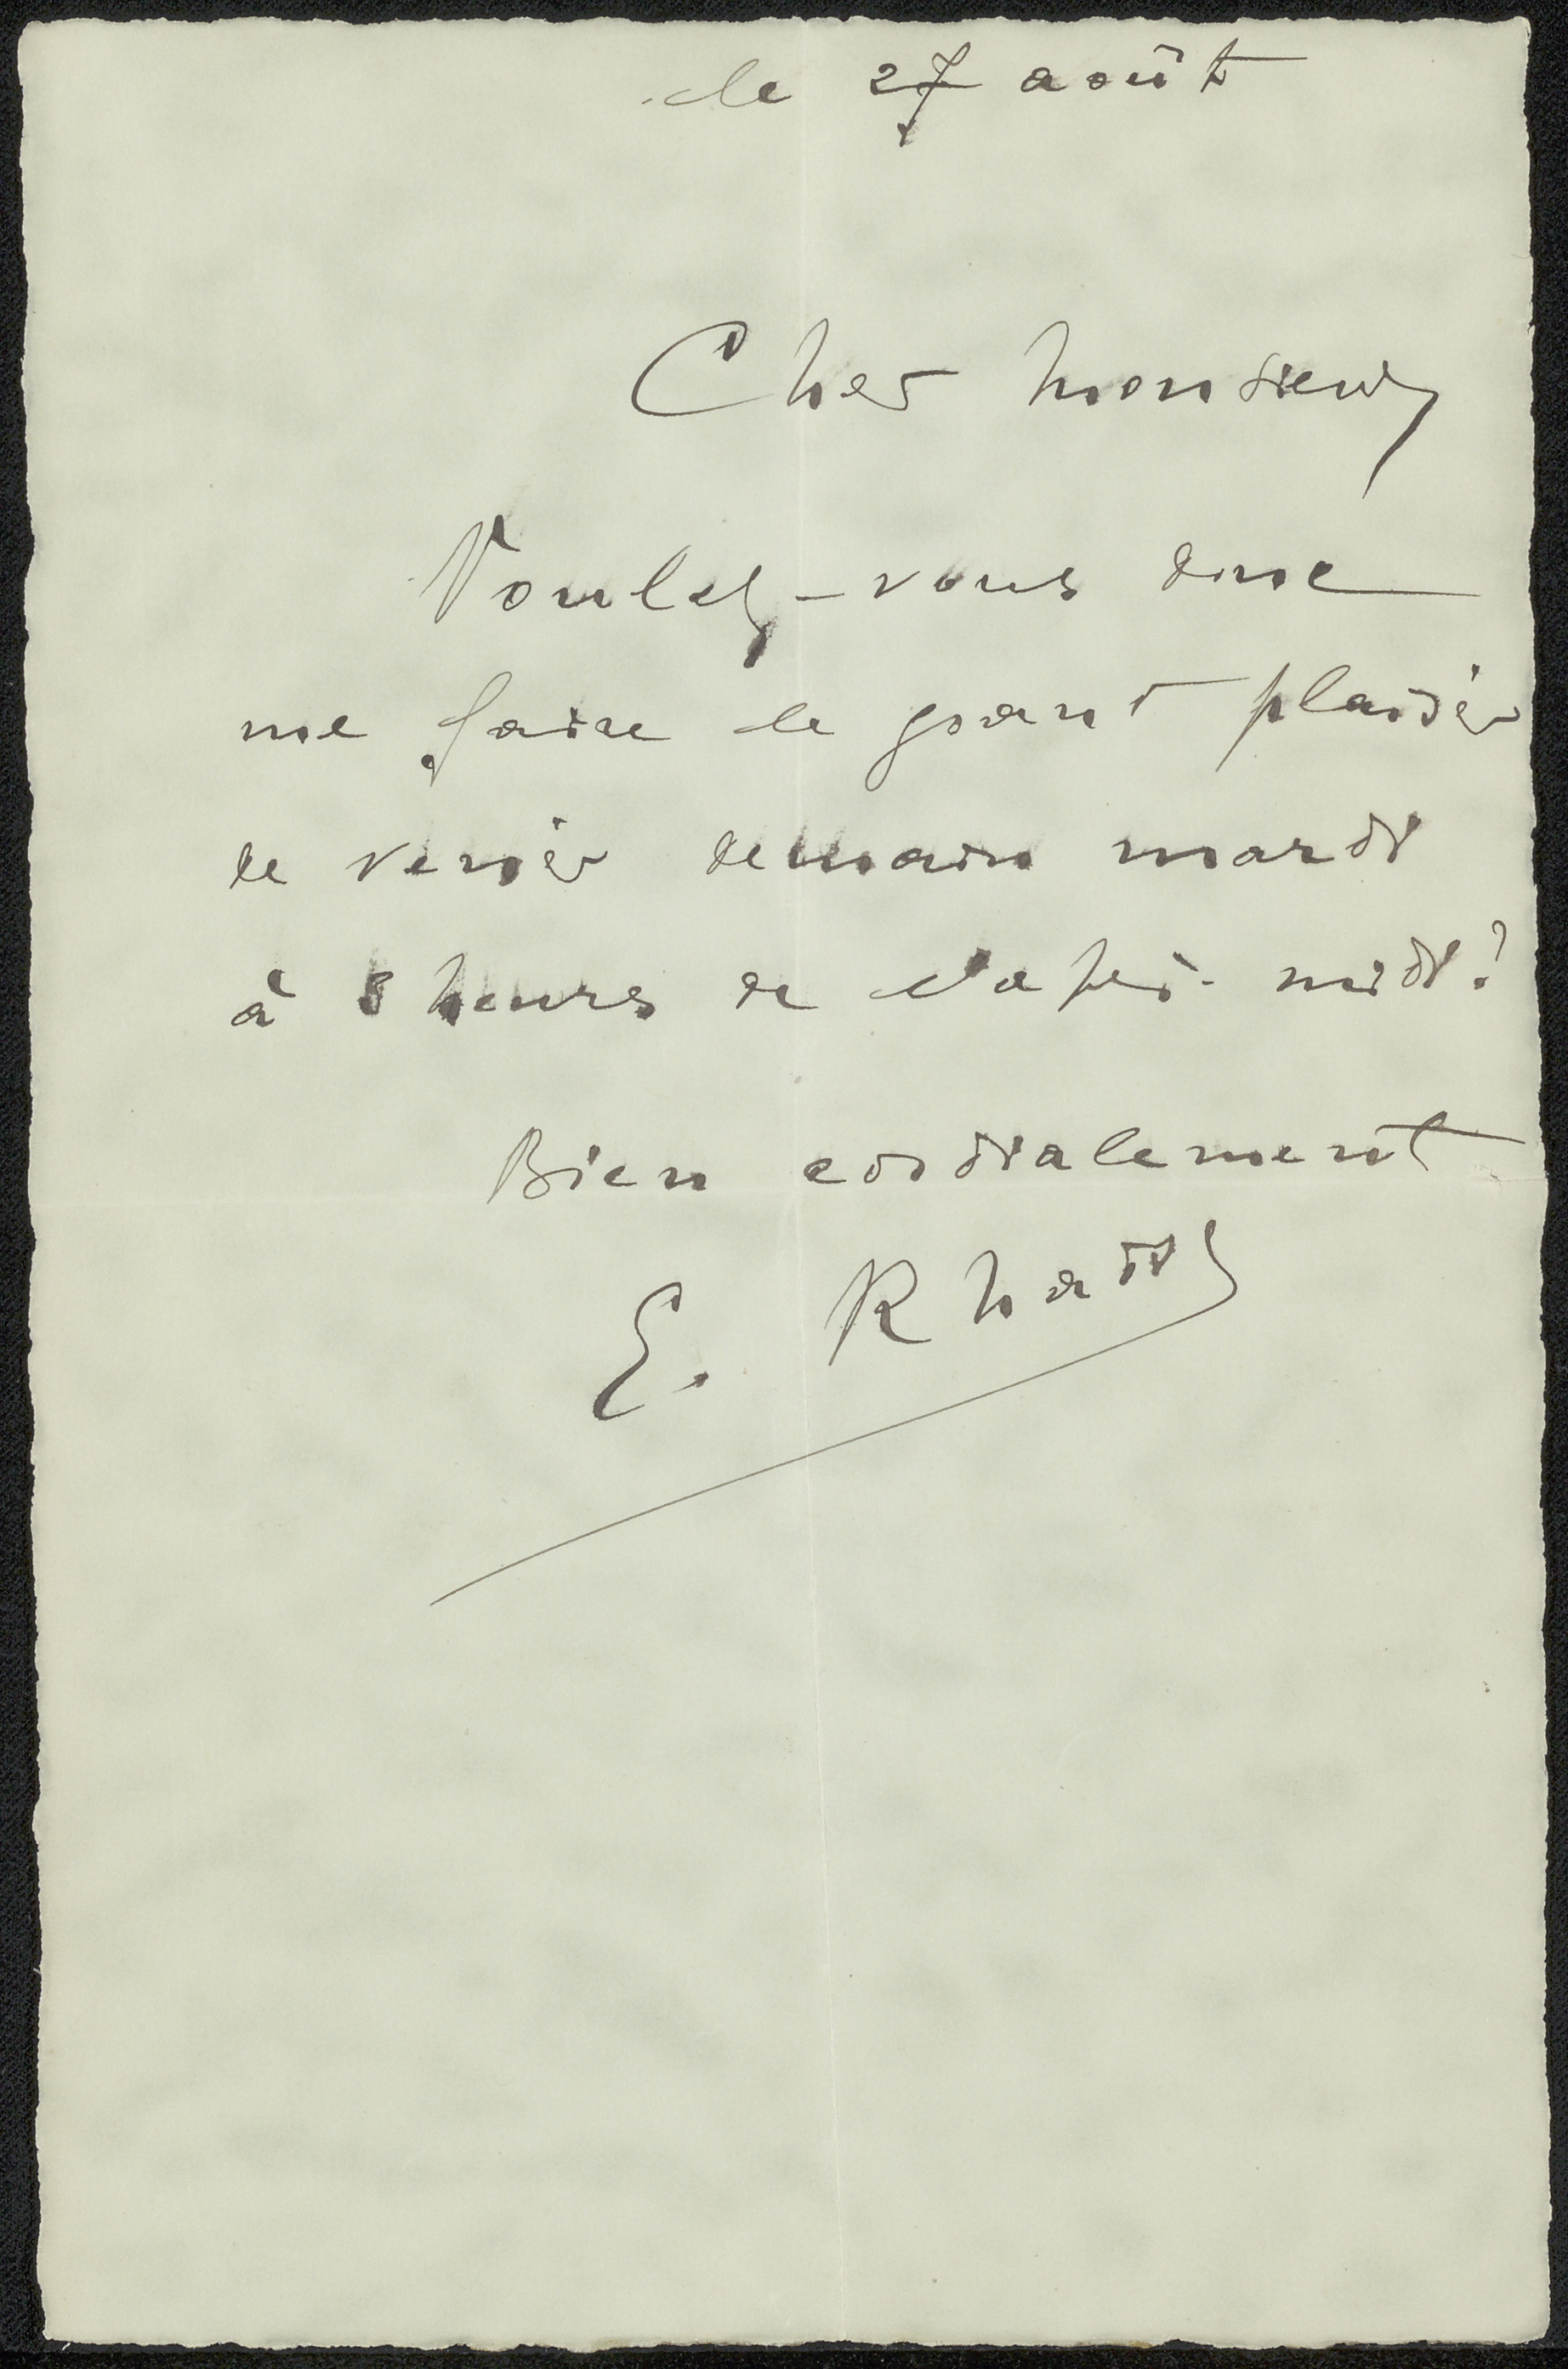 le 27 août
Cher Monsieur,
Voulez-vous donc
me faire le grand plaisir
de venir demain mardi
à 3 heures de l'après-midi?
Bien cordialement
E. Rhaïs